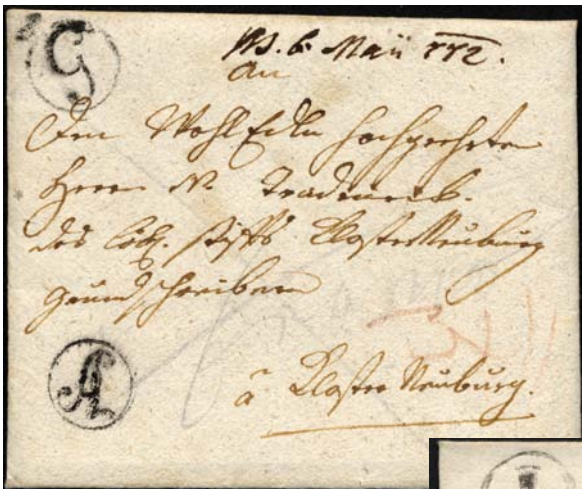 G
6. Maii 772.
An
Den Wohl Edln Hochgeehrten
Herrn N.
des löbl. Stiffts Closter Neuburg
Grundschreibern
A
à Closter Neuburg.